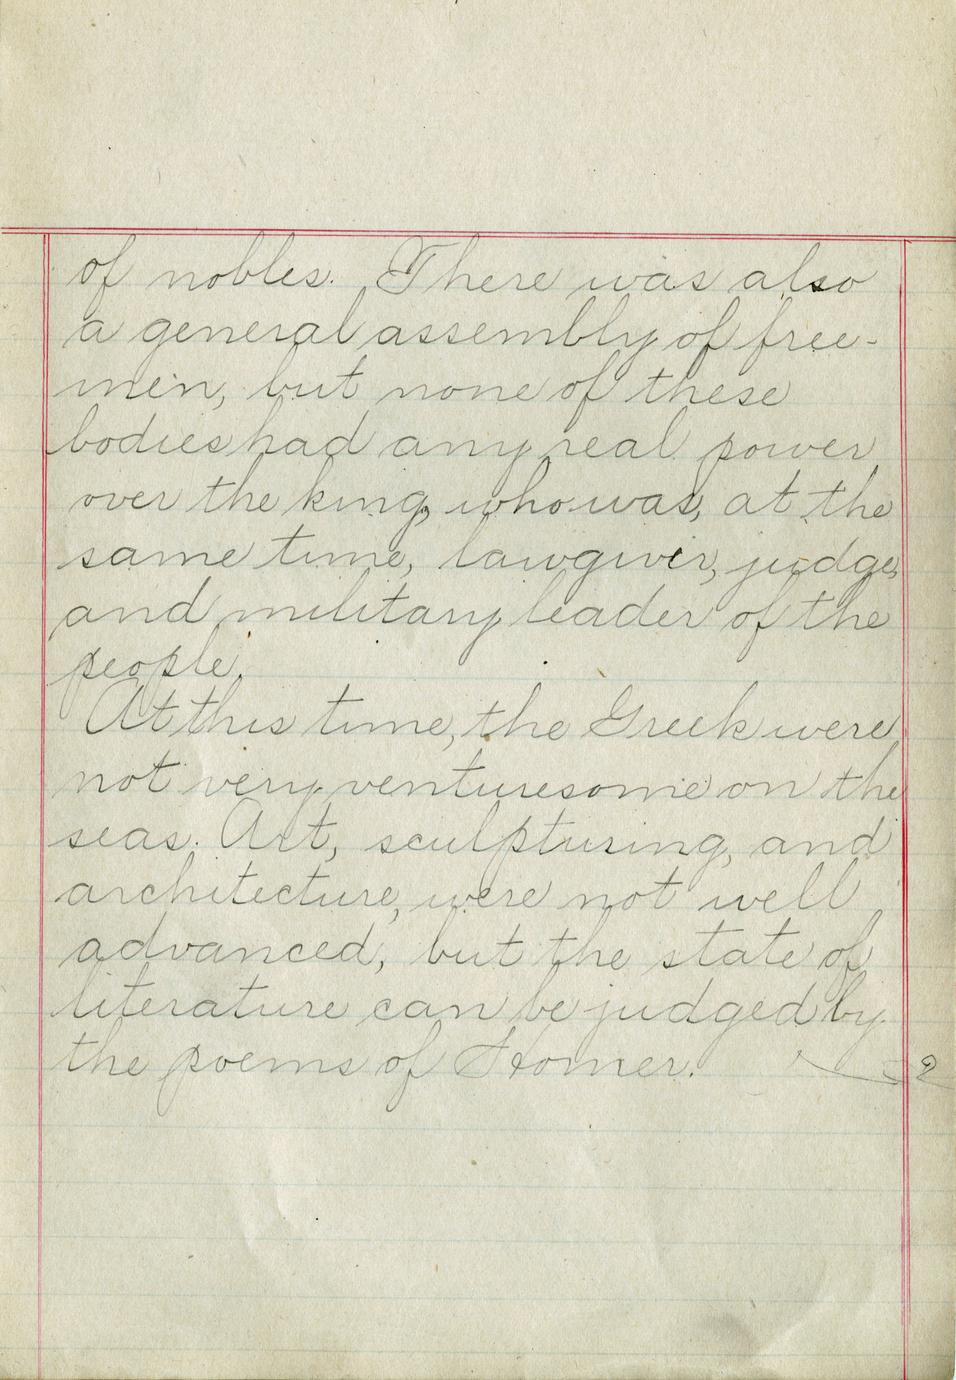 of nobles. There was also
a general assembly of free-
men, but none of these
bodies had any real power
over the king, who was, at the
same time, lawgiver, judge,
and military leader of the
people.
At this time, the Greek were
not very venturesome on the
seas. Art, sculpturing, and
architecture, were not well
advanced, but the state of
literature can be judged by
the poems of Homer.